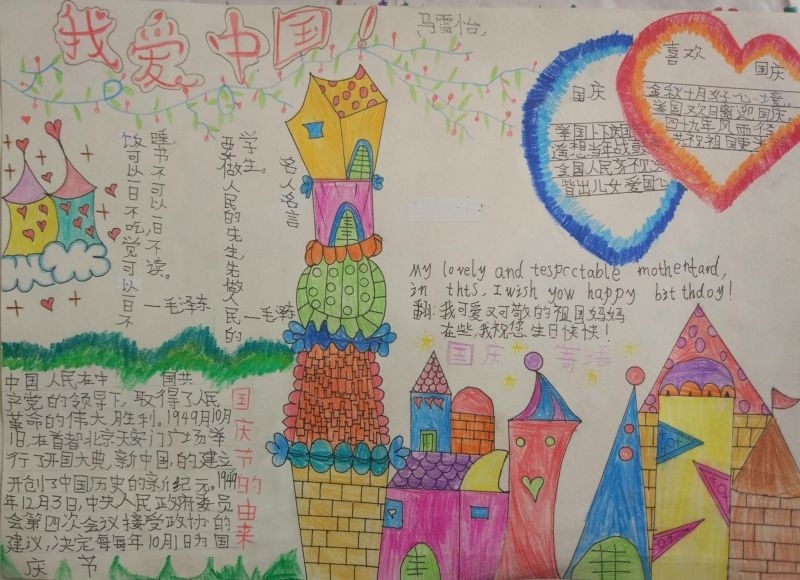 我爱中国!
马雪怡
名人名言
学生。
要做人民的先生,先做人民的
—毛泽东
睡
书不可以一日不读。
饭可以一日不吃,觉可以一日不
—毛泽东
国庆
举国上下庆国
遥想当年战
全国人民齐
皆出儿女爱国心
喜欢
国庆
金秋十月
举国欢月喜迎国庆
四十九年风雨
共祝祖国更
My lovely and tespcctable mothentard,
in thts, I wish yow happy birthdoy!
翻:我可爱又可敬的祖国妈妈
在些,我祝您生日快快!
国庆寄语
国庆节的由来
中国人民在中 国共
产党的领导下,取得了人民
革命的伟大胜利。1949月10月
1日,在首都北京天安门广场举
行了开国大典,新中国,的建立
开创了中国历史的新纪元。1949
年12月3日,中央人民政府委员
会第四次会议接受政协的
建议,决定每每年10月1日为国
庆 节